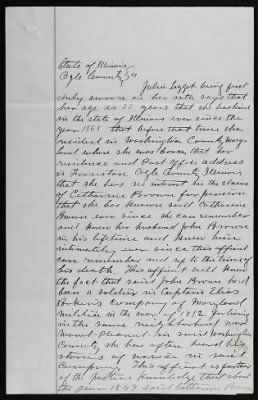 State of Illinois
Ogle County } ss
Julia being first
duly sworn on her oath says that
her age is 55 years that she has lived
in the state of Illinois ever since the
year 1868 that before that time she
resided in Washington County Mary-
land where she was born, that her
residence and Post Office address
is Forreston Ogle County Illinois
that she has no interest in the claim
of Catharine Brown for pension
that she has known said Catharine
Brown ever since she can remember
and knew her husband John Brown
in his lifetime and knew him
intimately ever since this affiant
can remember and up to the time of
his death. This affiant well knew
the fact that said John Brown had
been a soldier in Captain Elias
Company of Maryland
Militia in the war of 1812
in the same neighborhood near
Mount Pleasant in said Washington
County, she has often heard his
stories of service in said
Company. This affiant
of the knowledge that about
the year 1849 said Catharine Brown